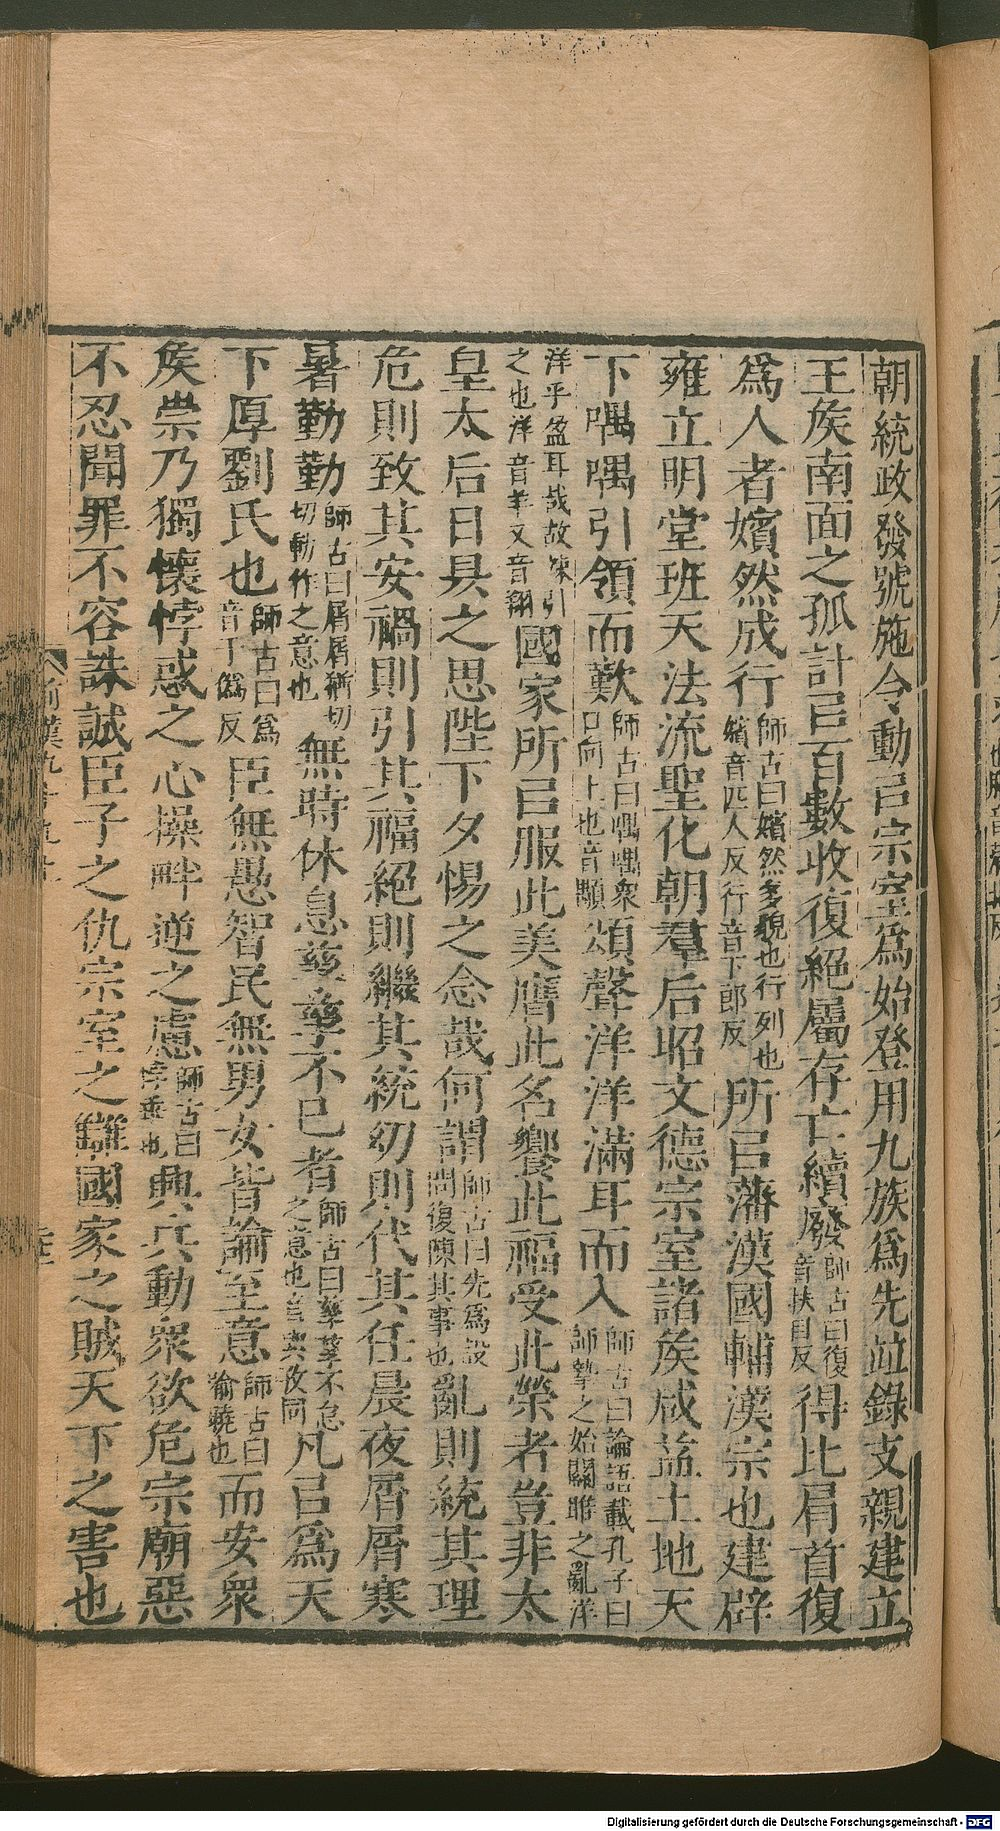 朝統政發號施令動㠯宗室爲始登用九族爲先竝錄支親建立
王矦南面之孤計㠯百數收復絕屬存亡續廢師古曰復音扶目反得比肩首復
爲人者嬪然成行師古曰嬪然多貌也行列也嬪音匹人反行音下郎反所㠯藩漢國輔漢宗也建辟
雍立明堂班天法流聖化朝羣后昭文德宗室諸矦咸益土地天
下喁喁引領而歎師古曰喁喁衆口向上也音顒頌聲洋洋滿耳而入師古曰論語載孔子曰師摯之始關雎之亂洋
洋乎盈耳哉故竦引之也洋音羊又音翔國家所㠯服此美膺此名饗此福受此榮者豈非太
皇太后日昃之思陛下夕惕之念哉何謂師古曰先爲設問復陳其事也亂則統其理
危則致其安禍則引其福絕則繼其統幼則代其任晨夜屑屑寒
暑勤勤師古曰屑屑猶切切動作之意也無時休息孳孳不已者師古曰孳孳不怠之意也音與孜同凡㠯爲天
下厚劉氏也師古曰爲音于僞反臣無愚智民無男女皆諭至意師古曰諭曉也而安衆
矦崇乃獨懷悖惑之心操畔逆之慮師古曰悖乖也興兵動衆欲危宗廟惡
不忍聞罪不容誅誠臣子之仇宗室之讎國家之賊天下之害也
Digitalisierung gefördert durch die Deutsche Forschungsgemeinschaft - DFG